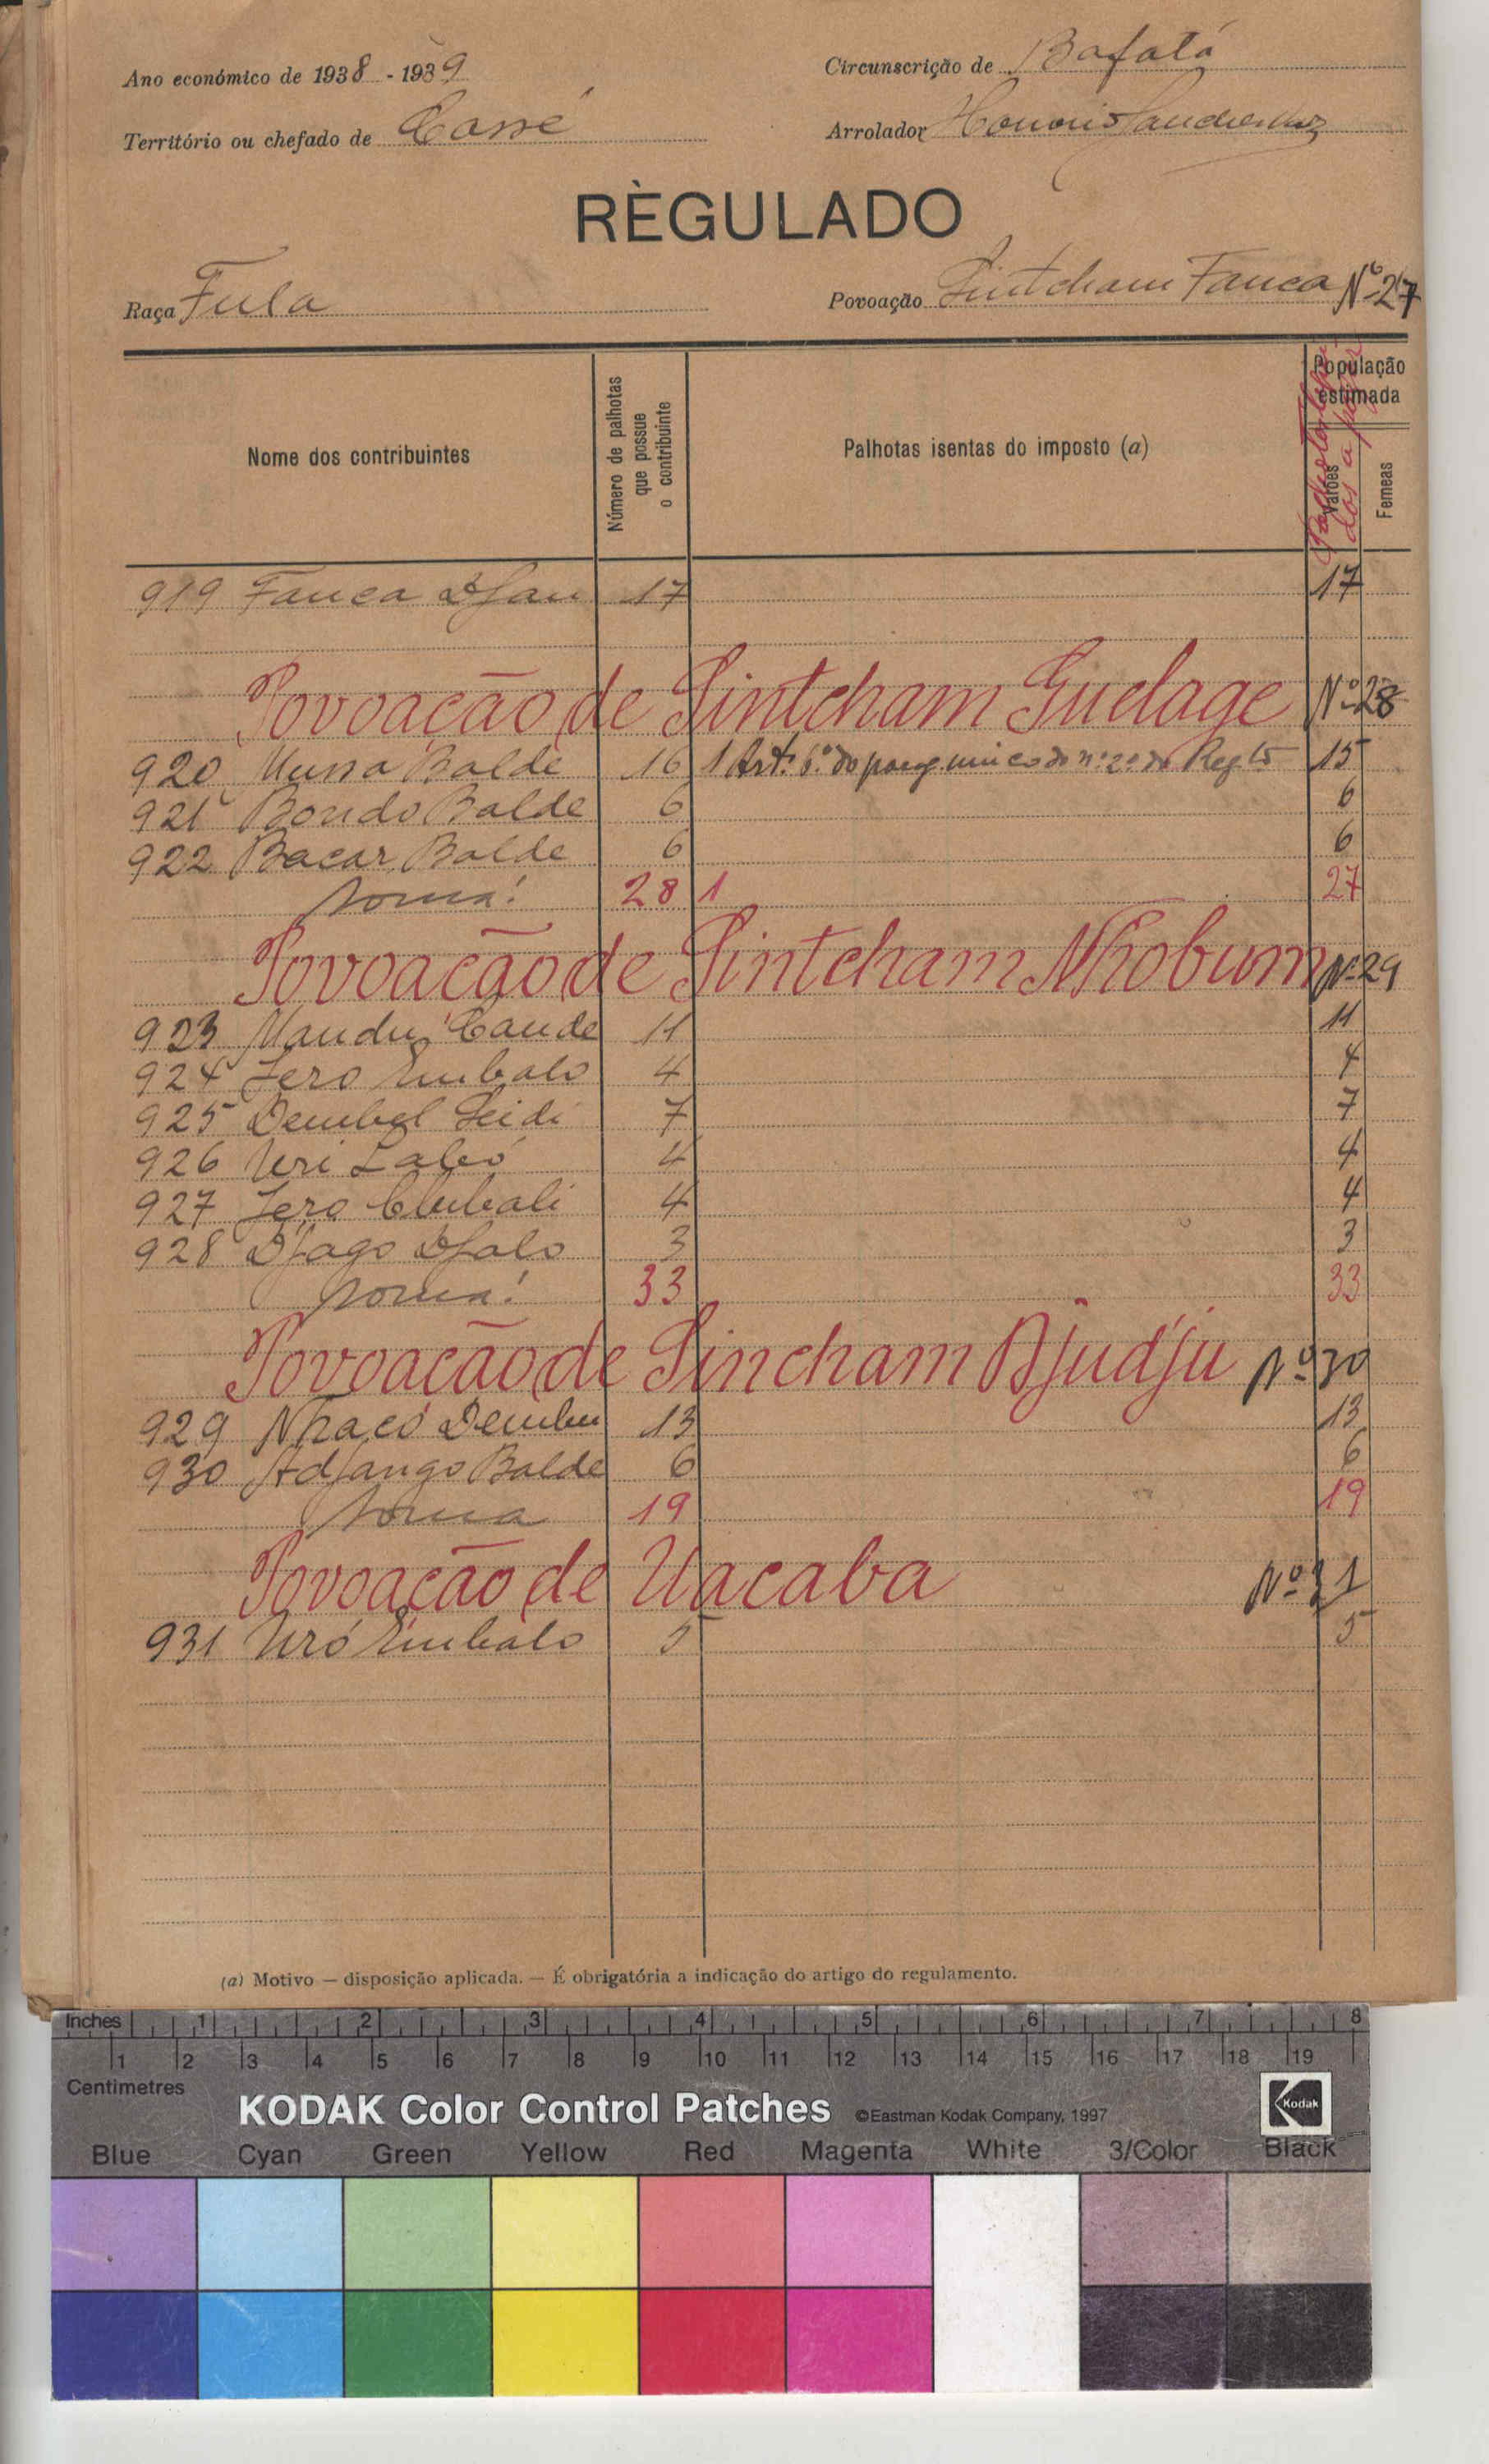 Ano económico de 1938 - 1939
Circunscrição de Bafatá
Território ou chefado de Cossé
Arrolador Honorio Sanches Vaz
RÈGULADO
Raça Fula
Povoação Sintcham Fanca Nº 27
Nome dos contribuintes
Número de palhotas que possue o contribuinte
Palhotas isentas do imposto (a)
População estimada
Varões
Femeas
919 Fanca Djau 17 17
Povoação de Sintcham Guelage Nº 28
920 Mussa Balde 16 1 Art.º 6.º do parag. unico do n.º 2.º do Regtº 15
921 Bondo Balde 6 6
922 Bacar Balde 6 6
Soma! 28 1 27
Povoação de Sintcham Nhobum Nº 29
923 Mandu Cande 11 11
924 Iero Embalo 4 4
925 Dembel Seidi 7 7
926 Uri Labó 4 4
927 Iero Clubali 4 4
928 Djago Djalo 3 3
Soma! 33 33
Povoação de Sincham Djudju Nº 30
929 Nhacó Dembu 13 13
930 Adjango Balde 6 6
Soma 19 19
Povoação de Uacaba Nº 31
931 Uró Embalo 5 5
(a) Motivo — disposição aplicada. — É obrigatória a indicação do artigo do regulamento.
Inches 1 2 3 4 5 6 7 8
1 2 3 4 5 6 7 8 9 10 11 12 13 14 15 16 17 18 19
Centimetres
KODAK Color Control Patches ©Eastman Kodak Company, 1997 Kodak
Blue Cyan Green Yellow Red Magenta White 3/Color Black